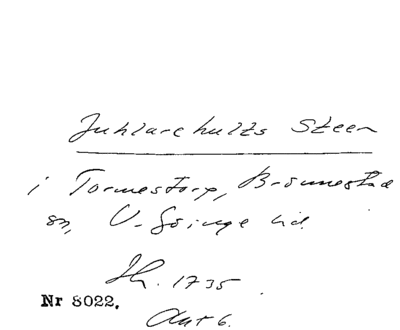 Juhlarehults Steen
i Tormestorp, Brönnestad
sn, V. Göinge hd.
Th. 1735
Nr 8022.
Akt 6.